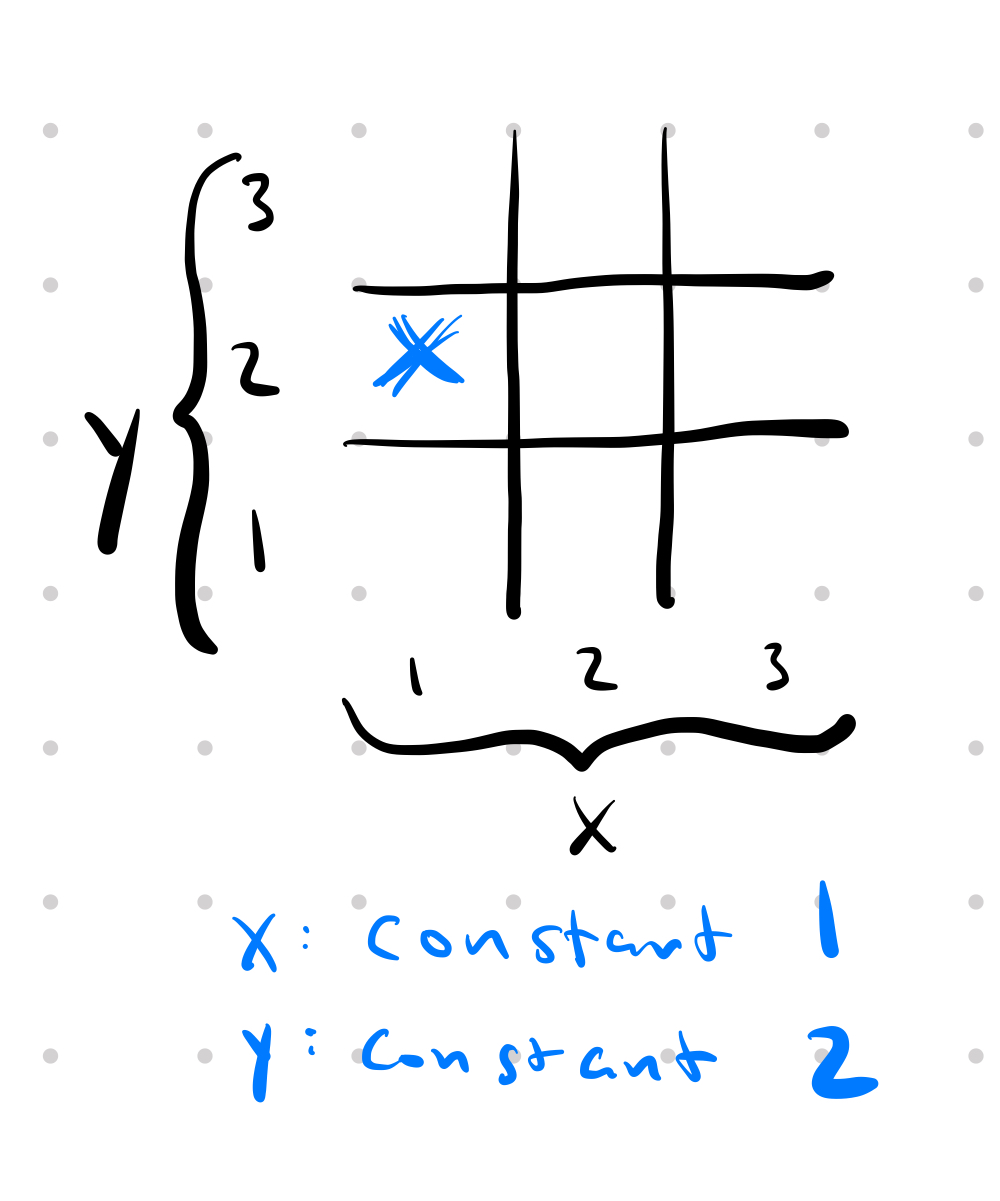 3
2
y
1
X
1 2 3
X
X: Constant 1
y: Constant 2